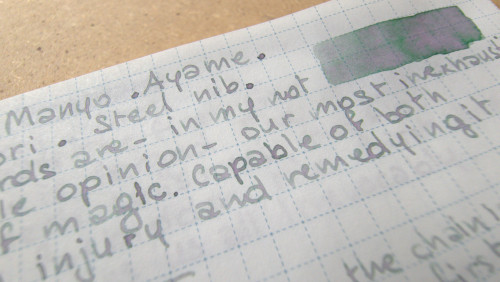 Manyo . Ayame .
ori . Steel nib.
rds are - in my not
le opinion - our most inexhausti
f magic. capable of both
injury and remedying it
the chain
first